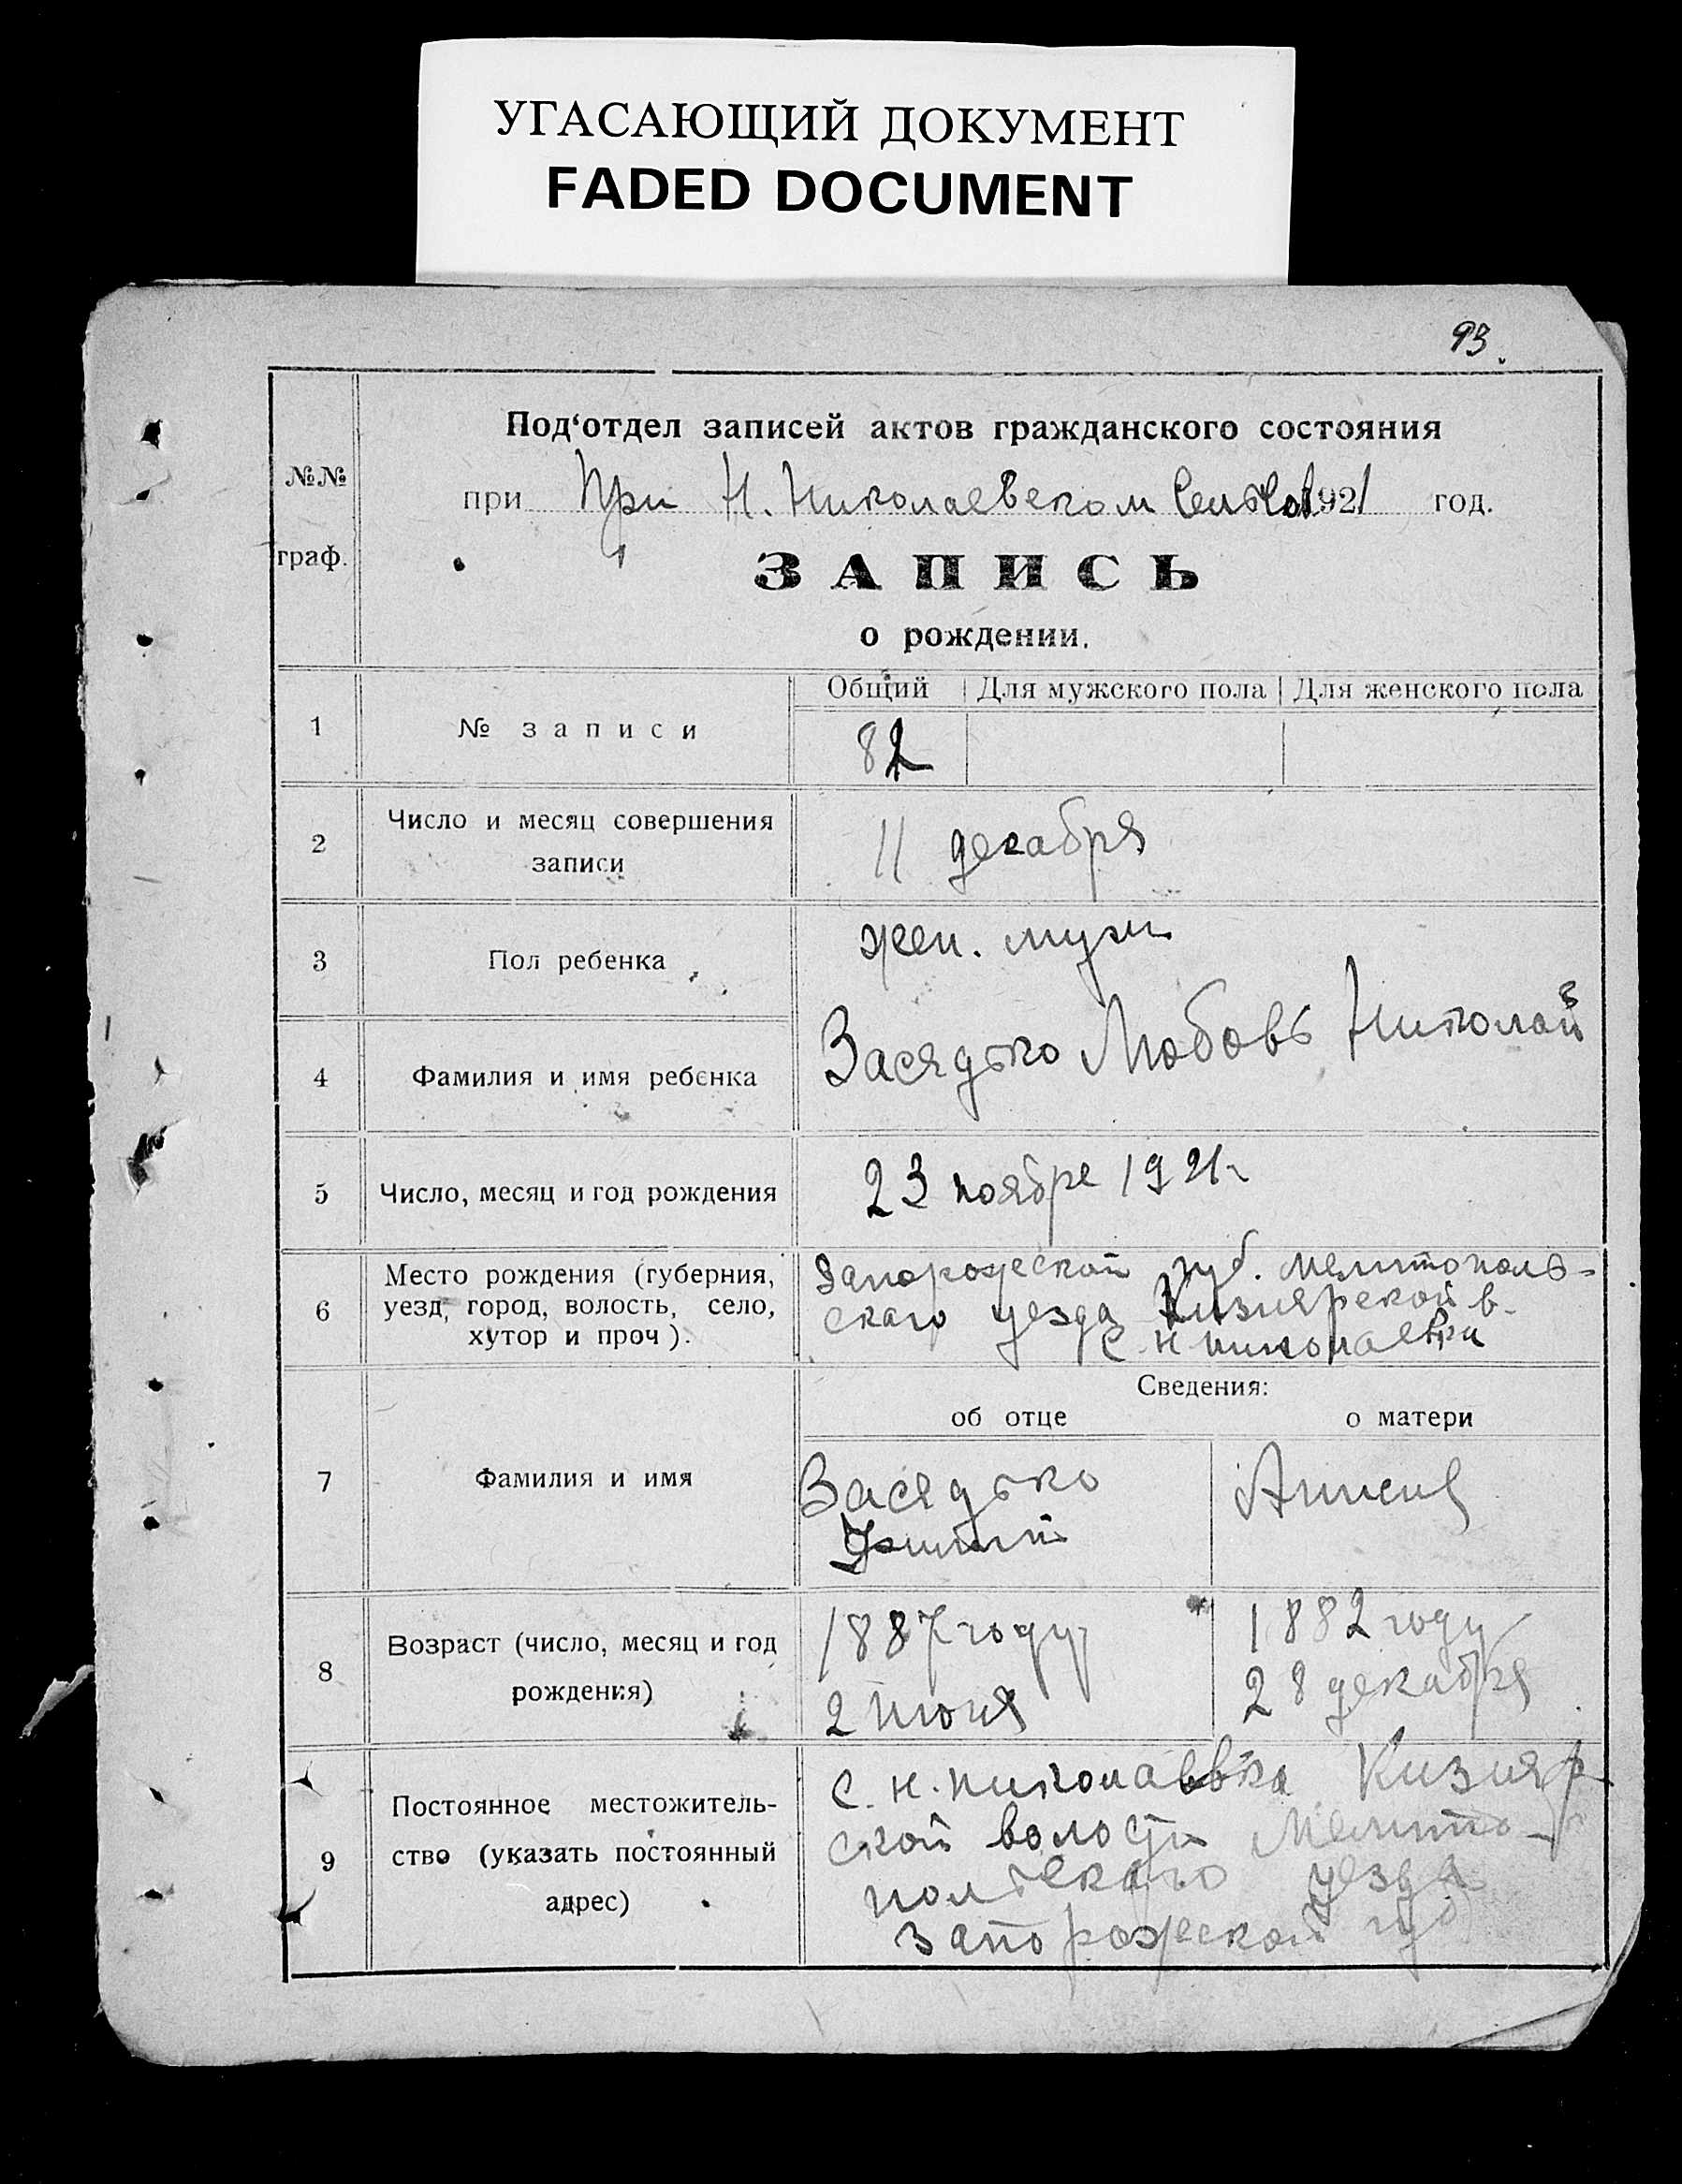 УГАСАЮЩИЙ ДОКУМЕНТ
FADED DOCUMENT
93.
№№
граф.
Под‘отдел записей актов гражданского состояния
при При Н. Николаевском 1921 год.
ЗАПИСЬ
о рождении.
1
№ записи
Общий Для мужского пола Для женского пола
82
2
Число и месяц совершения
записи
11 декабря
3
Пол ребенка
жен. муж
4
Фамилия и имя ребенка
Засядько Любовь Николай
5
Число, месяц и год рождения
23 ноября 1921 г
6
Место рождения (губерния,
уезд, город, волость, село,
хутор и проч).
Запорожской губ. Мелитополь-
скаго уезда Кизиярской в.
с. н николаевки
Сведения:
об отце о матери
7
Фамилия и имя
Засядько
8
Возраст (число, месяц и год
рождения)
1887 году
2 июня
1882 году
28 декабря
9
Постоянное местожитель-
ство (указать постоянный
адрес)
с. н. николаевка Кизияр
ской волости Мелито-
польскаго уезда
запорожской губ